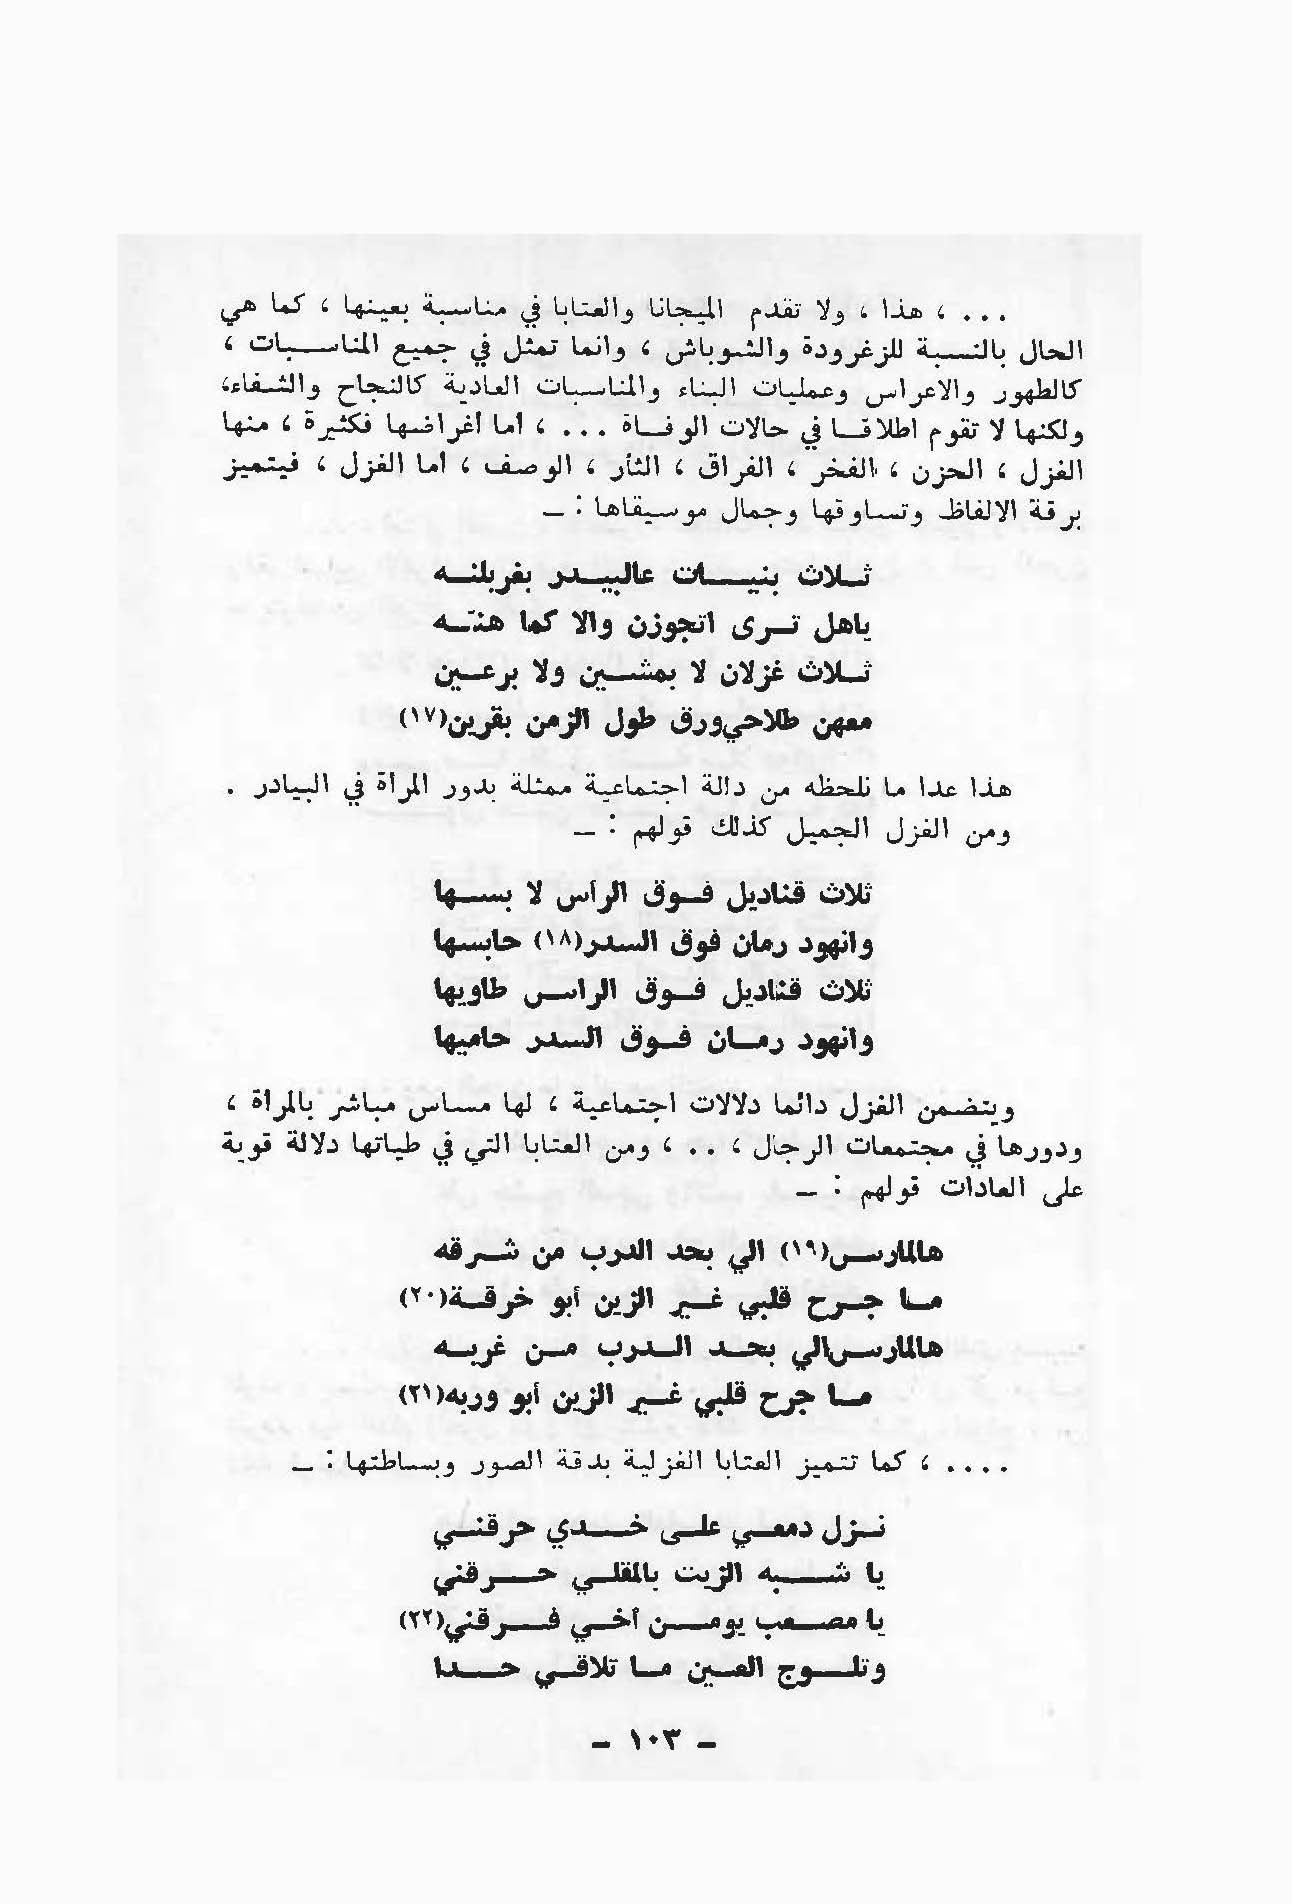 ... ، هذا ، ولا تقدم الميجانا والعتابا في مناسبة بعينها ، كما هي
الحال بالنسبة للزغرودة والشوباش ، وانما تمثل في جميع المناسبات ،
كالطهور والاعراس وعمليات البناء والمناسبات العادية كالنجاح والشفاء،
ولكنها لا تقوم اطلاقا في حالات الوفاة ... ، أما أغراضها فكثيرة ، منها
الغزل ، الحزن ، الفخر ، الفراق ، الثأر ، الوصف ، أما الغزل ، فيتميز
برقة الالفاظ وتساوقها وجمال موسيقاها : ـ
ثلاث بنيات عالبيدر بغربلنه
ياهل ترى اتجوزن والا كما هنّه
ثلاث غزلان لا بمشين ولا برعين
معهن طلاحي ورق طول الزمن بقرين(١٧)
هذا عدا ما نلحظه من دالة اجتماعية ممثلة بدور المرأة في البيادر .
ومن الغزل الجميل كذلك قولهم : ـ
ثلاث قناديل فوق الرأس لا بسها
وانهود رمان فوق السدر(١٨) حابسها
ثلاث قناديل فوق الراس طاويها
وانهود رمان فوق السدر حاميها
ويتضمن الغزل دائما دلالات اجتماعية ، لها مساس مباشر بالمرأة ،
ودورها في مجتمعات الرجال ، .. ، ومن العتابا التي في طياتها دلالة قوية
على العادات قولهم : ـ
هالمارس(١٩) الي بحد الدرب من شرقه
ما جرح قلبي غير الزين أبو خرقة(٢٠)
هالمارس الي بحد الدرب من غربه
ما جرح قلبي غير الزين أبو وربه(٢١)
.... ، كما تتميز العتابا الغزلية بدقة الصور وبساطتها : ـ
نزل دمعي على خدي حرقني
يا شبه الزيت بالمقلي حرقني
يا مصعب يومن أخي فرقني(٢٢)
وتلوج العين ما تلاقي حدا
ـ ١٠٣ ـ